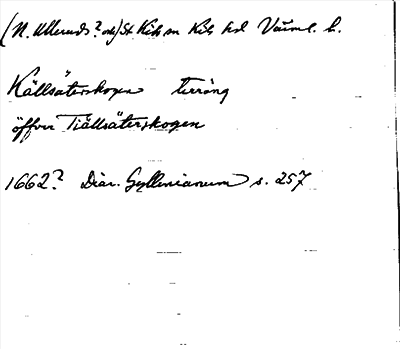 (N. Ulleruds? och) St. Kils sn Kils hd Värml. l.
Källsäterskogen terräng
öffver Tiällsäterskogen
1662? Diar. Gyllenianum s. 257